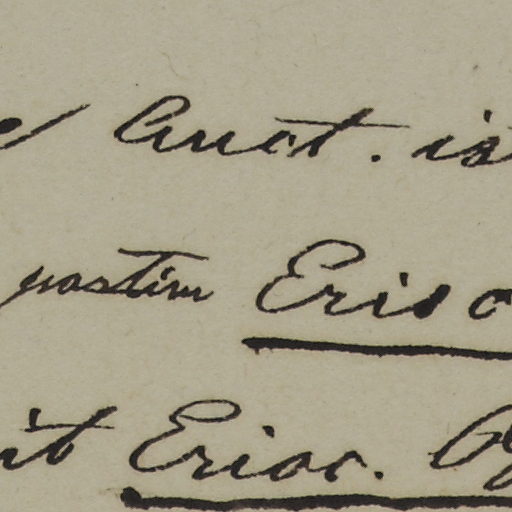 Auct. is
passim Erio
it Erioc.